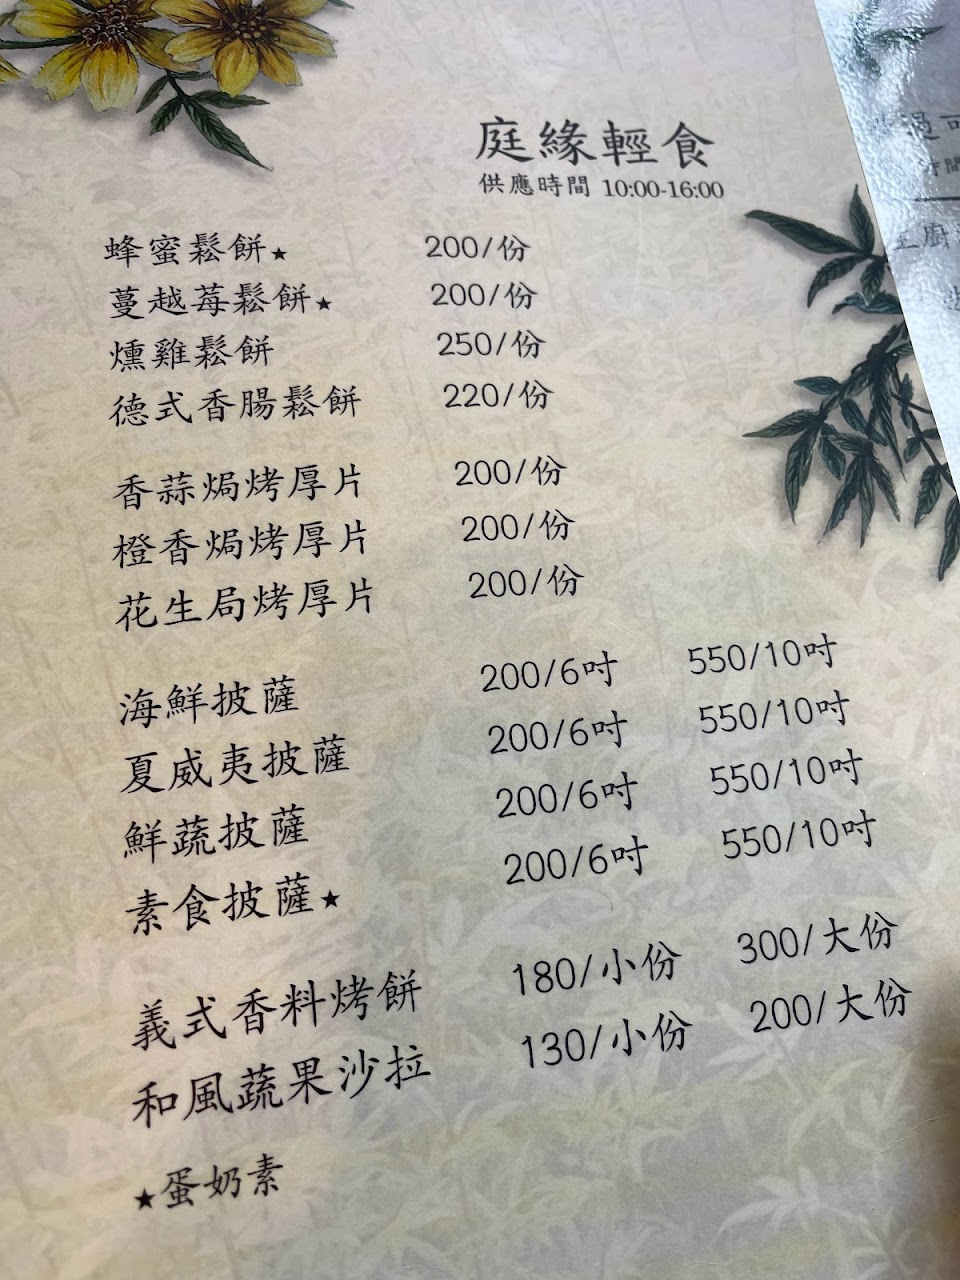 庭緣輕食
供應時間 10:00-16:00
蜂蜜鬆餅★ 200/份
蔓越莓鬆餅★ 200/份
燻雞鬆餅 250/份
德式香腸鬆餅 220/份
香蒜焗烤厚片 200/份
橙香焗烤厚片 200/份
花生局烤厚片 200/份
海鮮披薩 200/6吋 550/10吋
夏威夷披薩 200/6吋 550/10吋
鮮蔬披薩 200/6吋 550/10吋
素食披薩★ 200/6吋 550/10吋
義式香料烤餅 180/小份 300/大份
和風蔬果沙拉 130/小份 200/大份
★蛋奶素